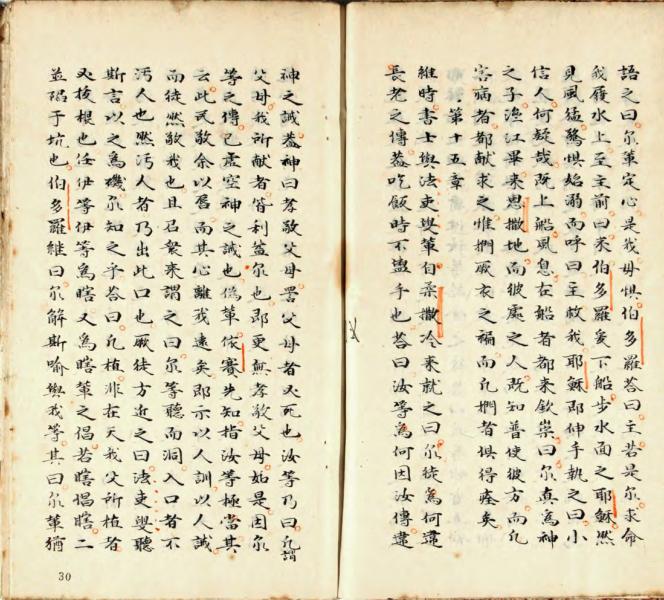 語之曰尔䓁定心是我毋惧伯多羅荅曰主若是尔求命
我履水上至主前曰来伯多羅爰下船步水面之耶穌然
見風猛驚惧始溺而呼曰主救我耶穌即伸手執之曰小
信人何疑哉既上船風息在船者都来欽崇曰尔真為神
之子漁江畢来思撒地而彼處之人既知普使彼方而凢
害病者都献求之惟捫厥衣之褔而凢捫者俱得痊矣
第十五章
維時書士與法吏叟䓁自柔撒冷来就之曰尔徒為何違
長老之傳葢吃飯時不盥手也荅曰汝等為何因汝傳違
神之誡葢神曰孝敬父母詈父母者必死也汝等乃曰凢謂
父母我所献者皆利益尔也即更無孝敬父母如是因尔
等之傳已虛空神之誡也偽䓁依賽先知指汝等極當其
云此民敬余以唇而其心離我遠矣即示以人訓以人誡
而徒然敬我也且召衆来謂之曰尔等聽而洞入口者不
汚人也然汚人者乃出此口也厥徒方近之曰法吏叟聽
斯言以之為礙尔知之乎荅曰凢植非在天我父所植者
必拔根也任伊等伊等為瞎又為瞎䓁之倡若瞎倡瞎二
並陷于坑也伯多羅継曰尔解斯喻與我等其曰尔䓁猶
30